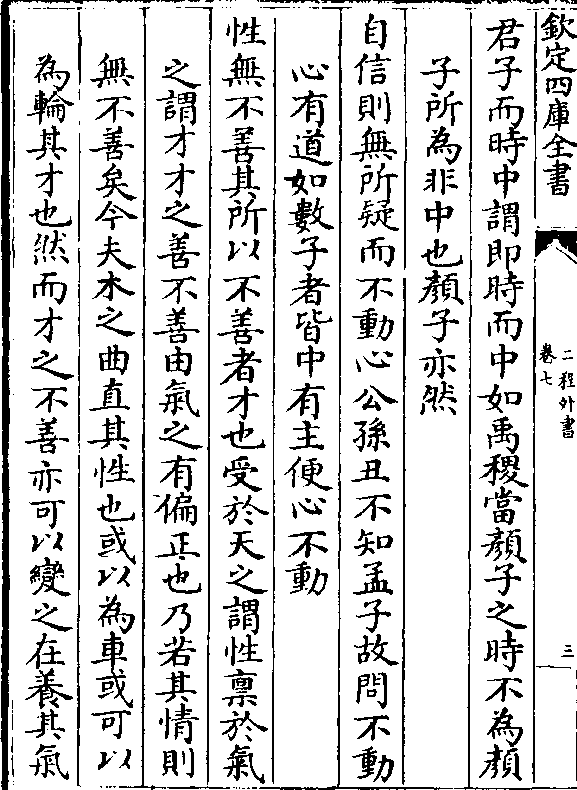 欽定四庫全書
二程外書
卷七
三
君子而時中謂即時而中如禹稷當顏子之時不為顏
子所為非中也顏子亦然
自信則無所疑而不動心公孫丑不知孟子故問不動
心有道如數子者皆中有主便心不動
性無不善其所以不善者才也受於天之謂性禀於氣
之謂才才之善不善由氣之有偏正也乃若其情則
無不善矣今夫木之曲直其性也或以為車或可以
為輪其才也然而才之不善亦可以變之在養其氣